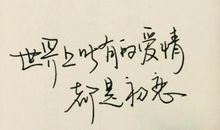 世界上所有的爱情
都是初恋